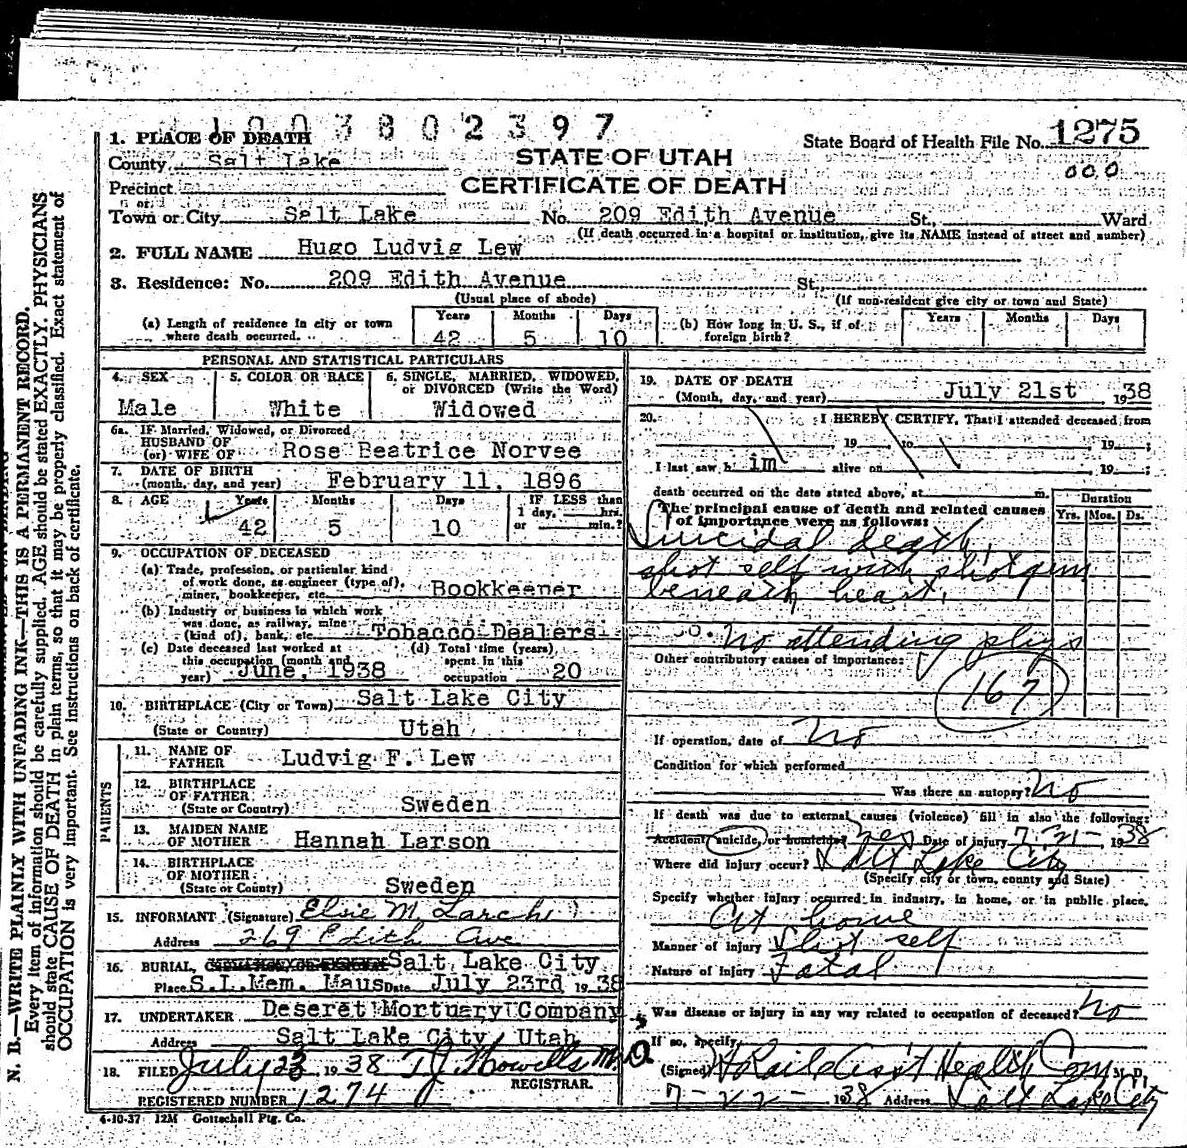 193802397
1. PLACE OF DEATH
State Board of Health File No. 1275
County Salt Lake
STATE OF UTAH
000
Precinct
CERTIFICATE OF DEATH
or
Town or City Salt Lake No. 209 Edith Avenue St. Ward
(If death occurred in a hospital or institution, give its NAME instead of street and number)
2. FULL NAME Hugo Ludvig Lew
3. Residence: No. 209 Edith Avenue St.
(Usual place of abode) (If non-resident give city or town and State)
(a) Length of residence in city or town where death occurred. Years 42 Months 5 Days 10
(b) How long in U. S., if of foreign birth? Years Months Days
PERSONAL AND STATISTICAL PARTICULARS
4. SEX Male
5. COLOR OR RACE White
6. SINGLE, MARRIED, WIDOWED, or DIVORCED (Write the Word) Widowed
6a. IF Married, Widowed, or Divorced
HUSBAND OF
(or) WIFE OF Rose Beatrice Norvee
7. DATE OF BIRTH
(month, day, and year) February 11, 1896
8. AGE Years 42 Months 5 Days 10 IF LESS than 1 day, hrs. or min.?
9. OCCUPATION OF DECEASED
(a) Trade, profession, or particular kind
of work done, as engineer (type of),
miner, bookkeeper, etc. Bookkeeper
(b) Industry or business in which work
was done, as railway, mine
(kind of), bank, etc. Tobacco Dealers
(c) Date deceased last worked at
this occupation (month and
year) June, 1938
(d) Total time (years)
spent in this
occupation 20
10. BIRTHPLACE (City or Town) Salt Lake City
(State or Country) Utah
PARENTS
11. NAME OF
FATHER Ludvig F. Lew
12. BIRTHPLACE
OF FATHER
(State or Country) Sweden
13. MAIDEN NAME
OF MOTHER Hannah Larson
14. BIRTHPLACE
OF MOTHER
(State or County) Sweden
15. INFORMANT (Signature) Elsie M.
Address 269 Edith Ave
16. BURIAL, Salt Lake City
Place S.L.Mem. Maus Date July 23rd 1938
17. UNDERTAKER Deseret Mortuary Company
Address Salt Lake City Utah
18. FILED July 23 1938 T.J. Howells M.D.
REGISTRAR.
REGISTERED NUMBER 1274
4-10-37 12M Gottschall Ptg. Co.
19. DATE OF DEATH
(Month, day, and year) July 21st 1938
20. I HEREBY CERTIFY, That I attended deceased from
19 to 19 ;
I last saw h im alive on , 19 ;
death occurred on the date stated above, at m.
Duration
Yrs. Mos. Ds.
The principal cause of death and related causes
of importance were as follows:
Suicidal death,
shot self with shotgun
beneath heart.
no attending phys
Other contributory causes of importance:
167
If operation, date of No
Condition for which performed
Was there an autopsy? No
If death was due to external causes (violence) fill in also the following:
Accident suicide, or homicide? yes Date of injury 7-21-1938
Where did injury occur? Salt Lake City
(Specify city or town, county and State)
Specify whether injury occurred in industry, in home, or in public place.
At home
Manner of injury Shot self
Nature of injury Fatal
Was disease or injury in any way related to occupation of deceased? No
If so, specify
(Signed) Ass't Health Com M.D.
7-22-1938 Address Salt Lake City
N. B.—WRITE PLAINLY WITH UNFADING INK—THIS IS A PERMANENT RECORD.
Every item of information should be carefully supplied. AGE should be stated EXACTLY. PHYSICIANS
should state CAUSE OF DEATH in plain terms, so that it may be properly classified. Exact statement of
OCCUPATION is very important. See instructions on back of certificate.